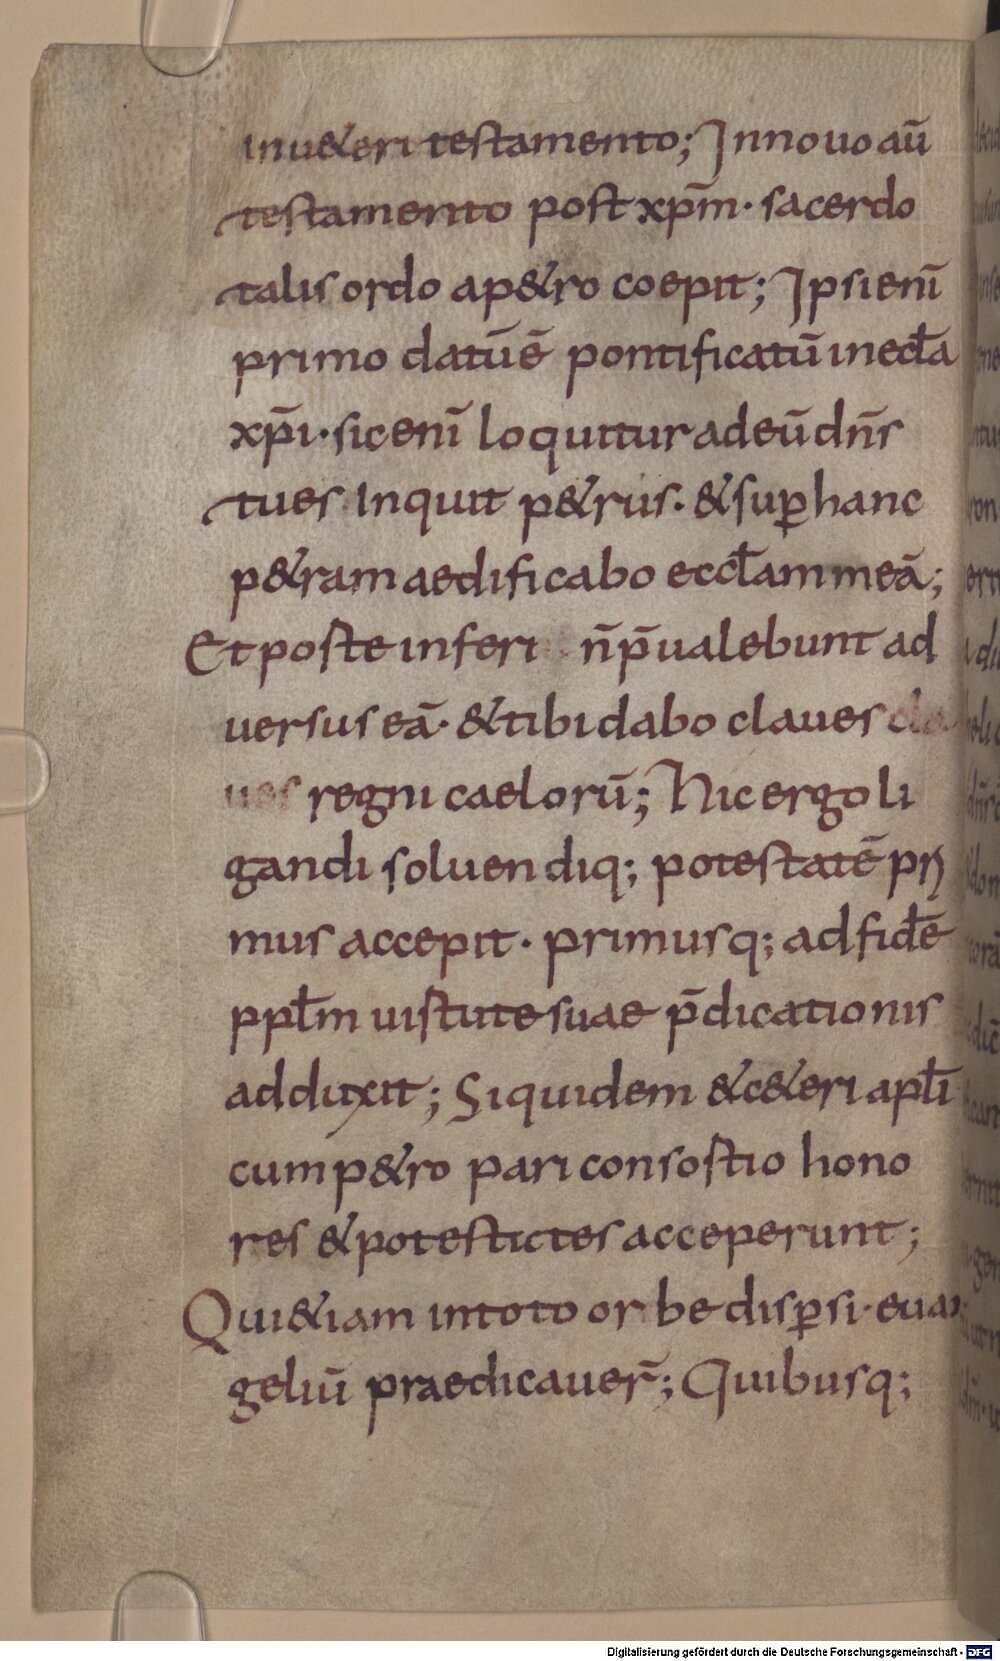 inu&eri testamento; Innouo aū
testamento post xp̄m· sacerdo
talis ordo ap&ro coepit; Ipsi enī
primo datū ē pontificatū inecl̄a
xp̄i· sic enī loquitur adeū dn̄s
tu es inquit p&rus· & sup̱ hanc
p&ram aedificabo eccl̄am meā;
Et poste inferi n̄ p̄ualebunt ad
uersus eā· & tibi dabo claues cla
ues regni caelorū; Hic ergo li
gandi soluendiq; potestatē pri
mus accepit· primusq; ad fidē
ppl̄m uistute suae p̄dicationis
adduxit; Siquidem & c&eri apl̄i
cum p&ro pari consostio hono
res & potestictes acceperunt;
Qui &iam intoto orbe disp̱si· euan
geliū praedicauer̄; Quibusq;
Digitalisierung gefördert durch die Deutsche Forschungsgemeinschaft - DFG